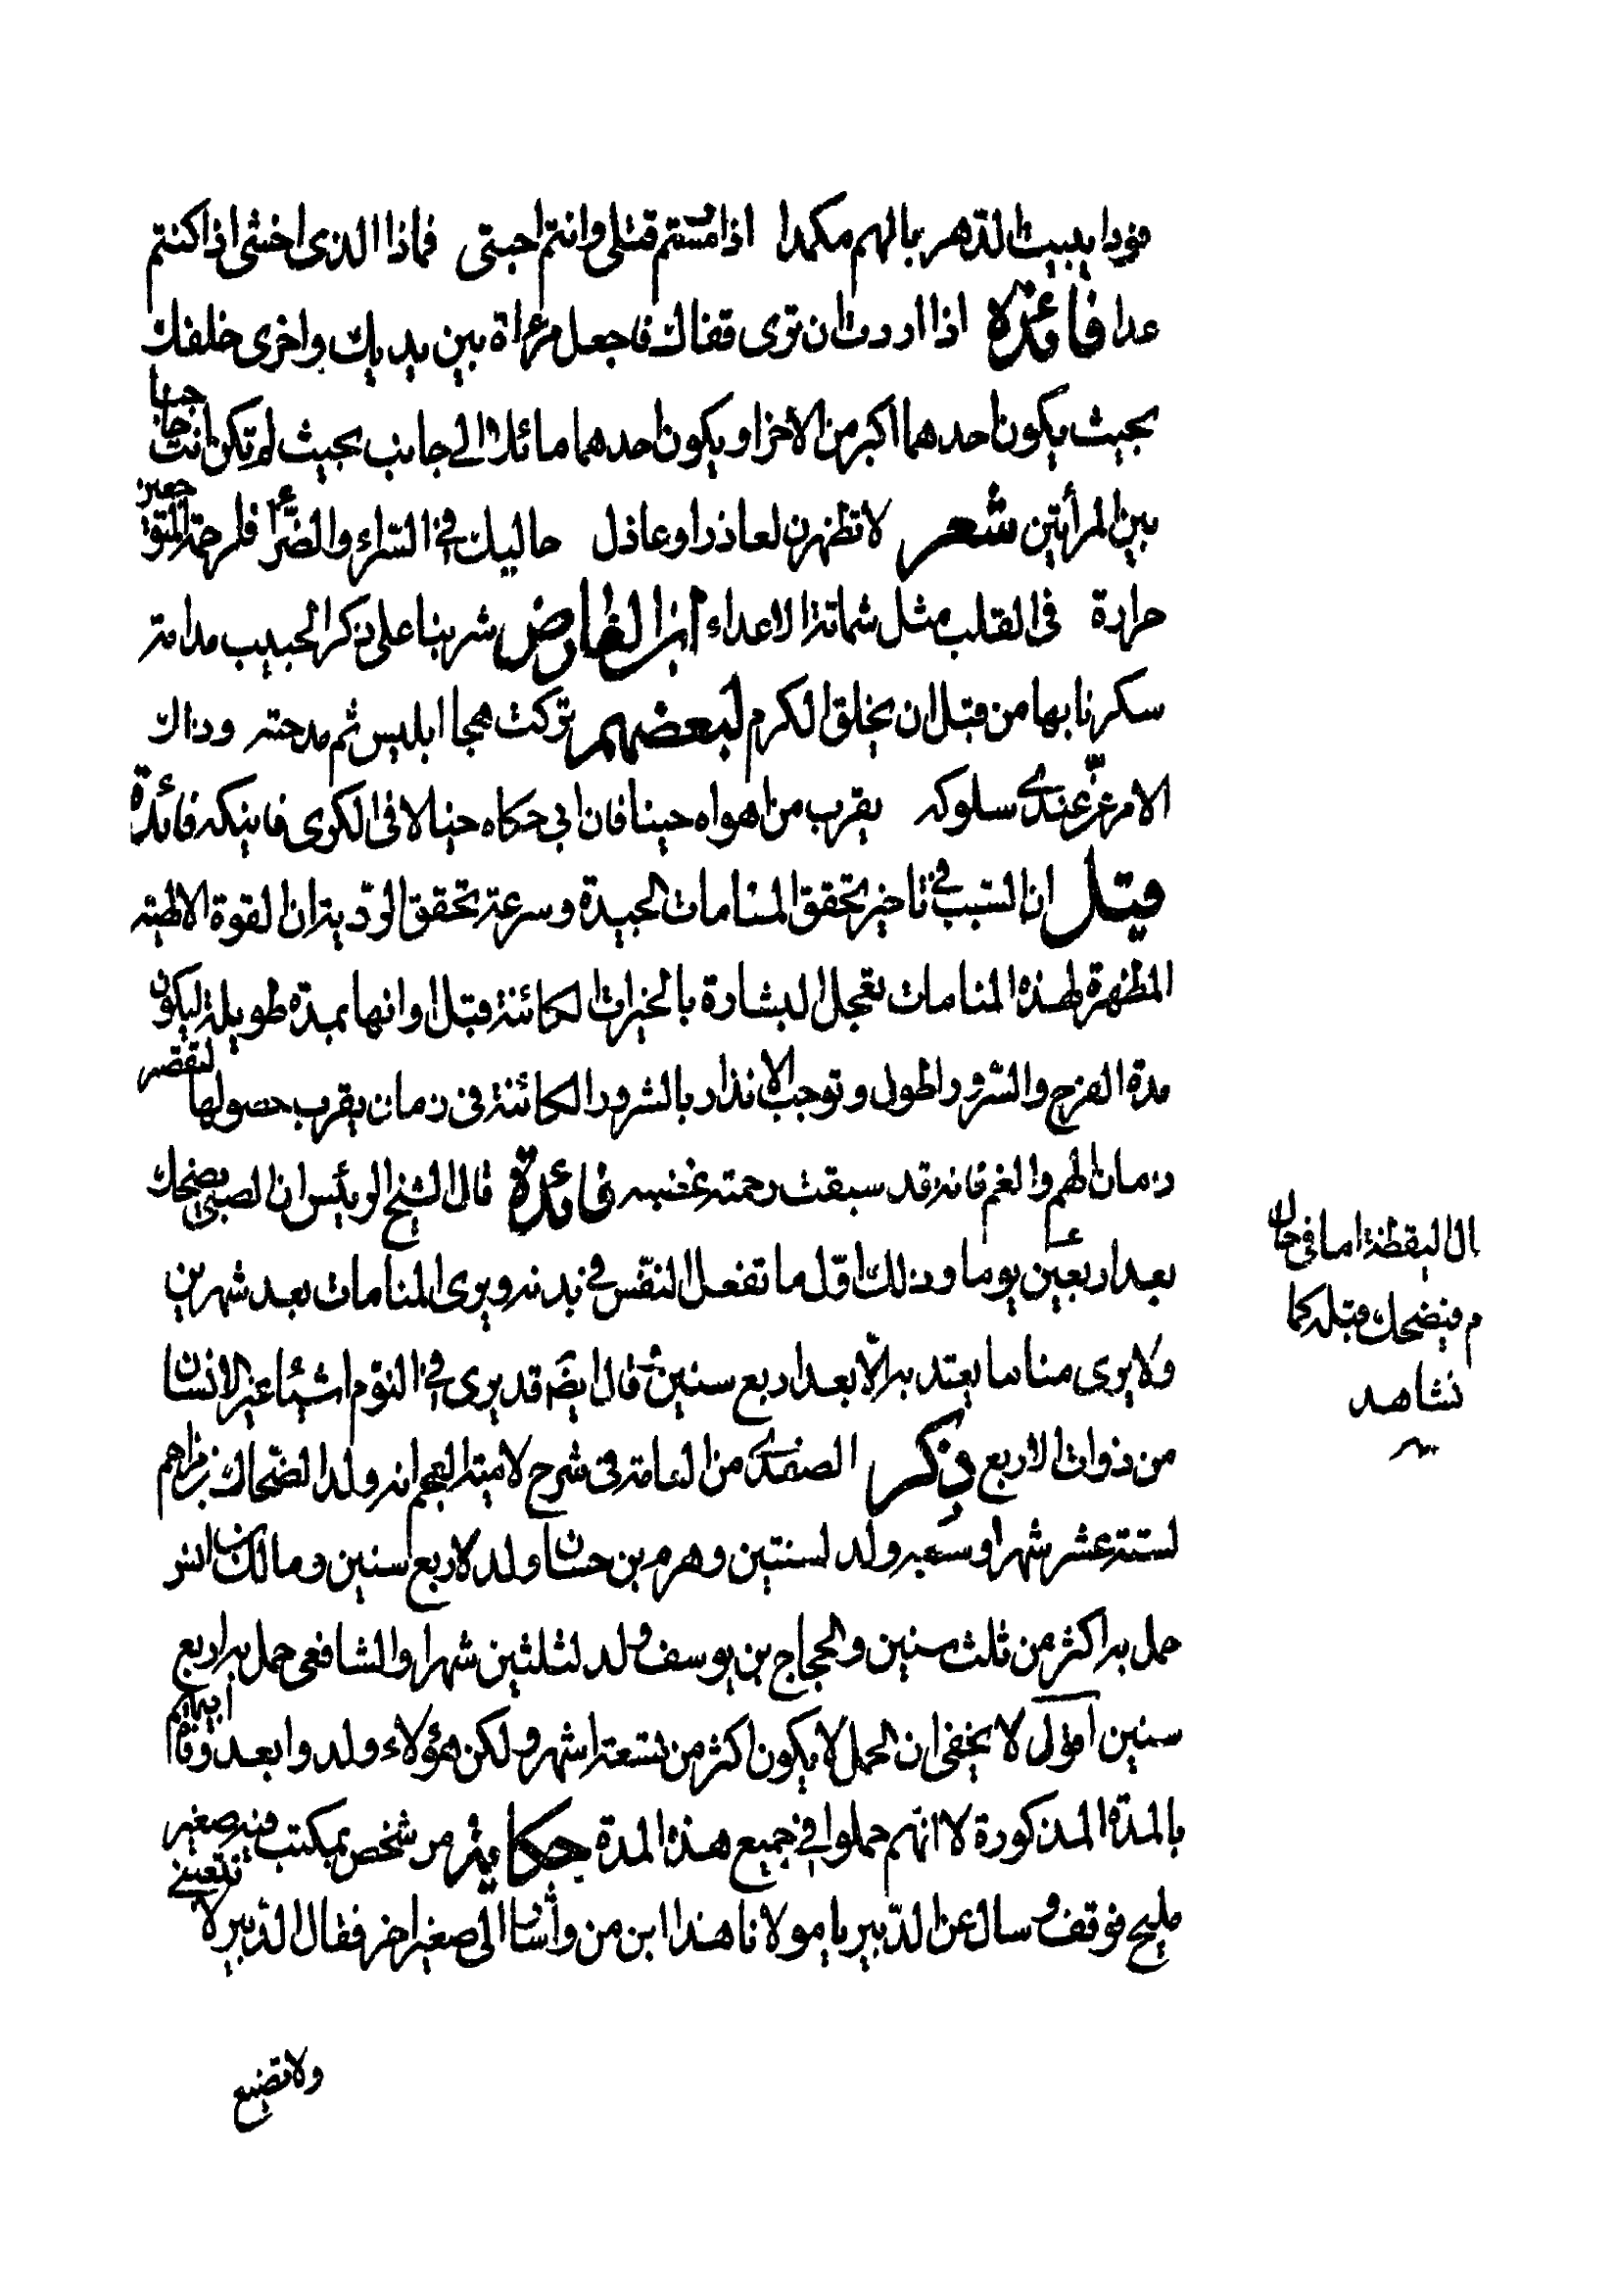 فؤدا يبيت الدهر بالهم مكمدا اذا رمتم قتلى وانتم احبتى فماذا الذى اخشى اذا كنتم
عدا فائدة اذا اردت ان ترى قفاك فاجعل مرءاة بين يديك واخرى خلفك
بحيث يكون احدهما اكبر من الأخر او يكون احدهما مائلا الى جانب بحيث لم تكن انت حاجبا
بين المرأتين شعر لا تظهرن لعاذر او عاذل حاليك فى السّراء والضّرّاء فلرحمة المتوجعين
حرارة فى القلب مثل شماتة الاعداء ابن الفارض شربنا على ذكر الحبيب مدامة
سكرنا بها من قبل ان يخلق الكرم لبعضهم تركت هجا ابليس ثم مدحته وذاك
الامر عزّ عندى سلوكه يقرب من اهواه حينا فان ابى حكاه خيالا فى الكرى فاينكه فائدة
قيل ان السّبب فى تاخير تحقق المنامات الجيدة وسرعة تحقق الرّدية ان القوة الالهية
المظهرة لهذه المنامات تعجل البشارة بالخيرات الكائنة قبل اوانها بمدة طويلة ليكون
مدة الفرح والسّرور اطول وتوجب الانذار بالشرور الكائنة فى زمان يقرب حصولها لتقصر
زمان الهم والغم فانه قد سبقت رحمته غضبه فائدة قال الشيخ الرئيس ان الصبى يضحك
بعد اربعين يوما وذلك اوّل ما تفعل النفس فى بدنه ويرى المنامات بعد شهرين
ولا يرى مناما يعتد به الّا بعد اربع سنين ثم قال ايضا قد يرى فى النوم اشياء غير الانسان
من ذوات الاربع ذكر الصفدى من العامة فى شرح لامية العجم انه ولد الضحّاك بن مزاحم
لستة عشر شهرا وسعيد ولد لسنتين وهرم بن حسان ولد لاربع سنين ومالك بن انس
حمل به اكثر من ثلث سنين والحجاج بن يوسف ولد لثلثين شهرا والشافعى حمل به اربع
سنين اقول لا يخفى ان الحمل لا يكون اكثر من تسعة اشهر ولكن هؤلاء ولدوا بعد وفاة ابيهم
بالمدة المذكورة لا انهم حملوا فى جميع هذه المدة حكاية مر شخص بمكتب فيه صغير
مليح فوقف وسال عن الدّبير يا مولانا هذا ابن من واشار الى صغير اخر فقال الدّبير لا تتعبنى
ولا تضيع
ال اليقظة اما فى حال
م فيضحك قبله كما
نشاهد